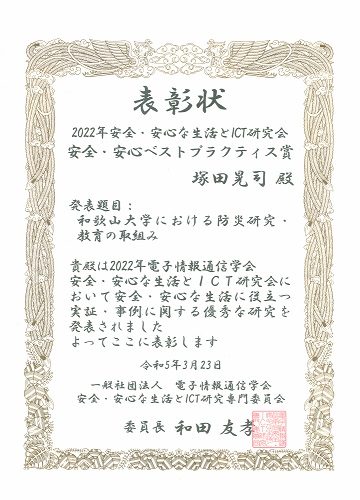 表彰状
2022年安全・安心な生活とICT研究会
安全・安心ベストプラクティス賞
塚田晃司 殿
発表題目：
和歌山大学における防災研究・
教育の取組み
貴殿は2022年電子情報通信学会
安全・安心な生活とＩＣＴ研究会に
おいて安全・安心な生活に役立つ
実証・事例に関する優秀な研究を
発表されました
よってここに表彰します
令和5年3月23日
一般社団法人 電子情報通信学会
安全・安心な生活とICT研究専門委員会
委員長 和田 友孝